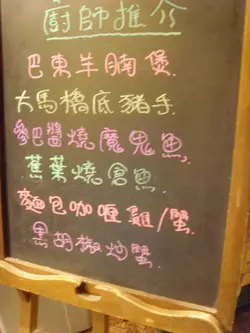 廚師推介
巴東羊腩煲
大馬橋底豬手
參巴醬燒魔鬼魚
蕉葉燒倉魚
麵包咖喱雞/蟹
黑胡椒炒蟹